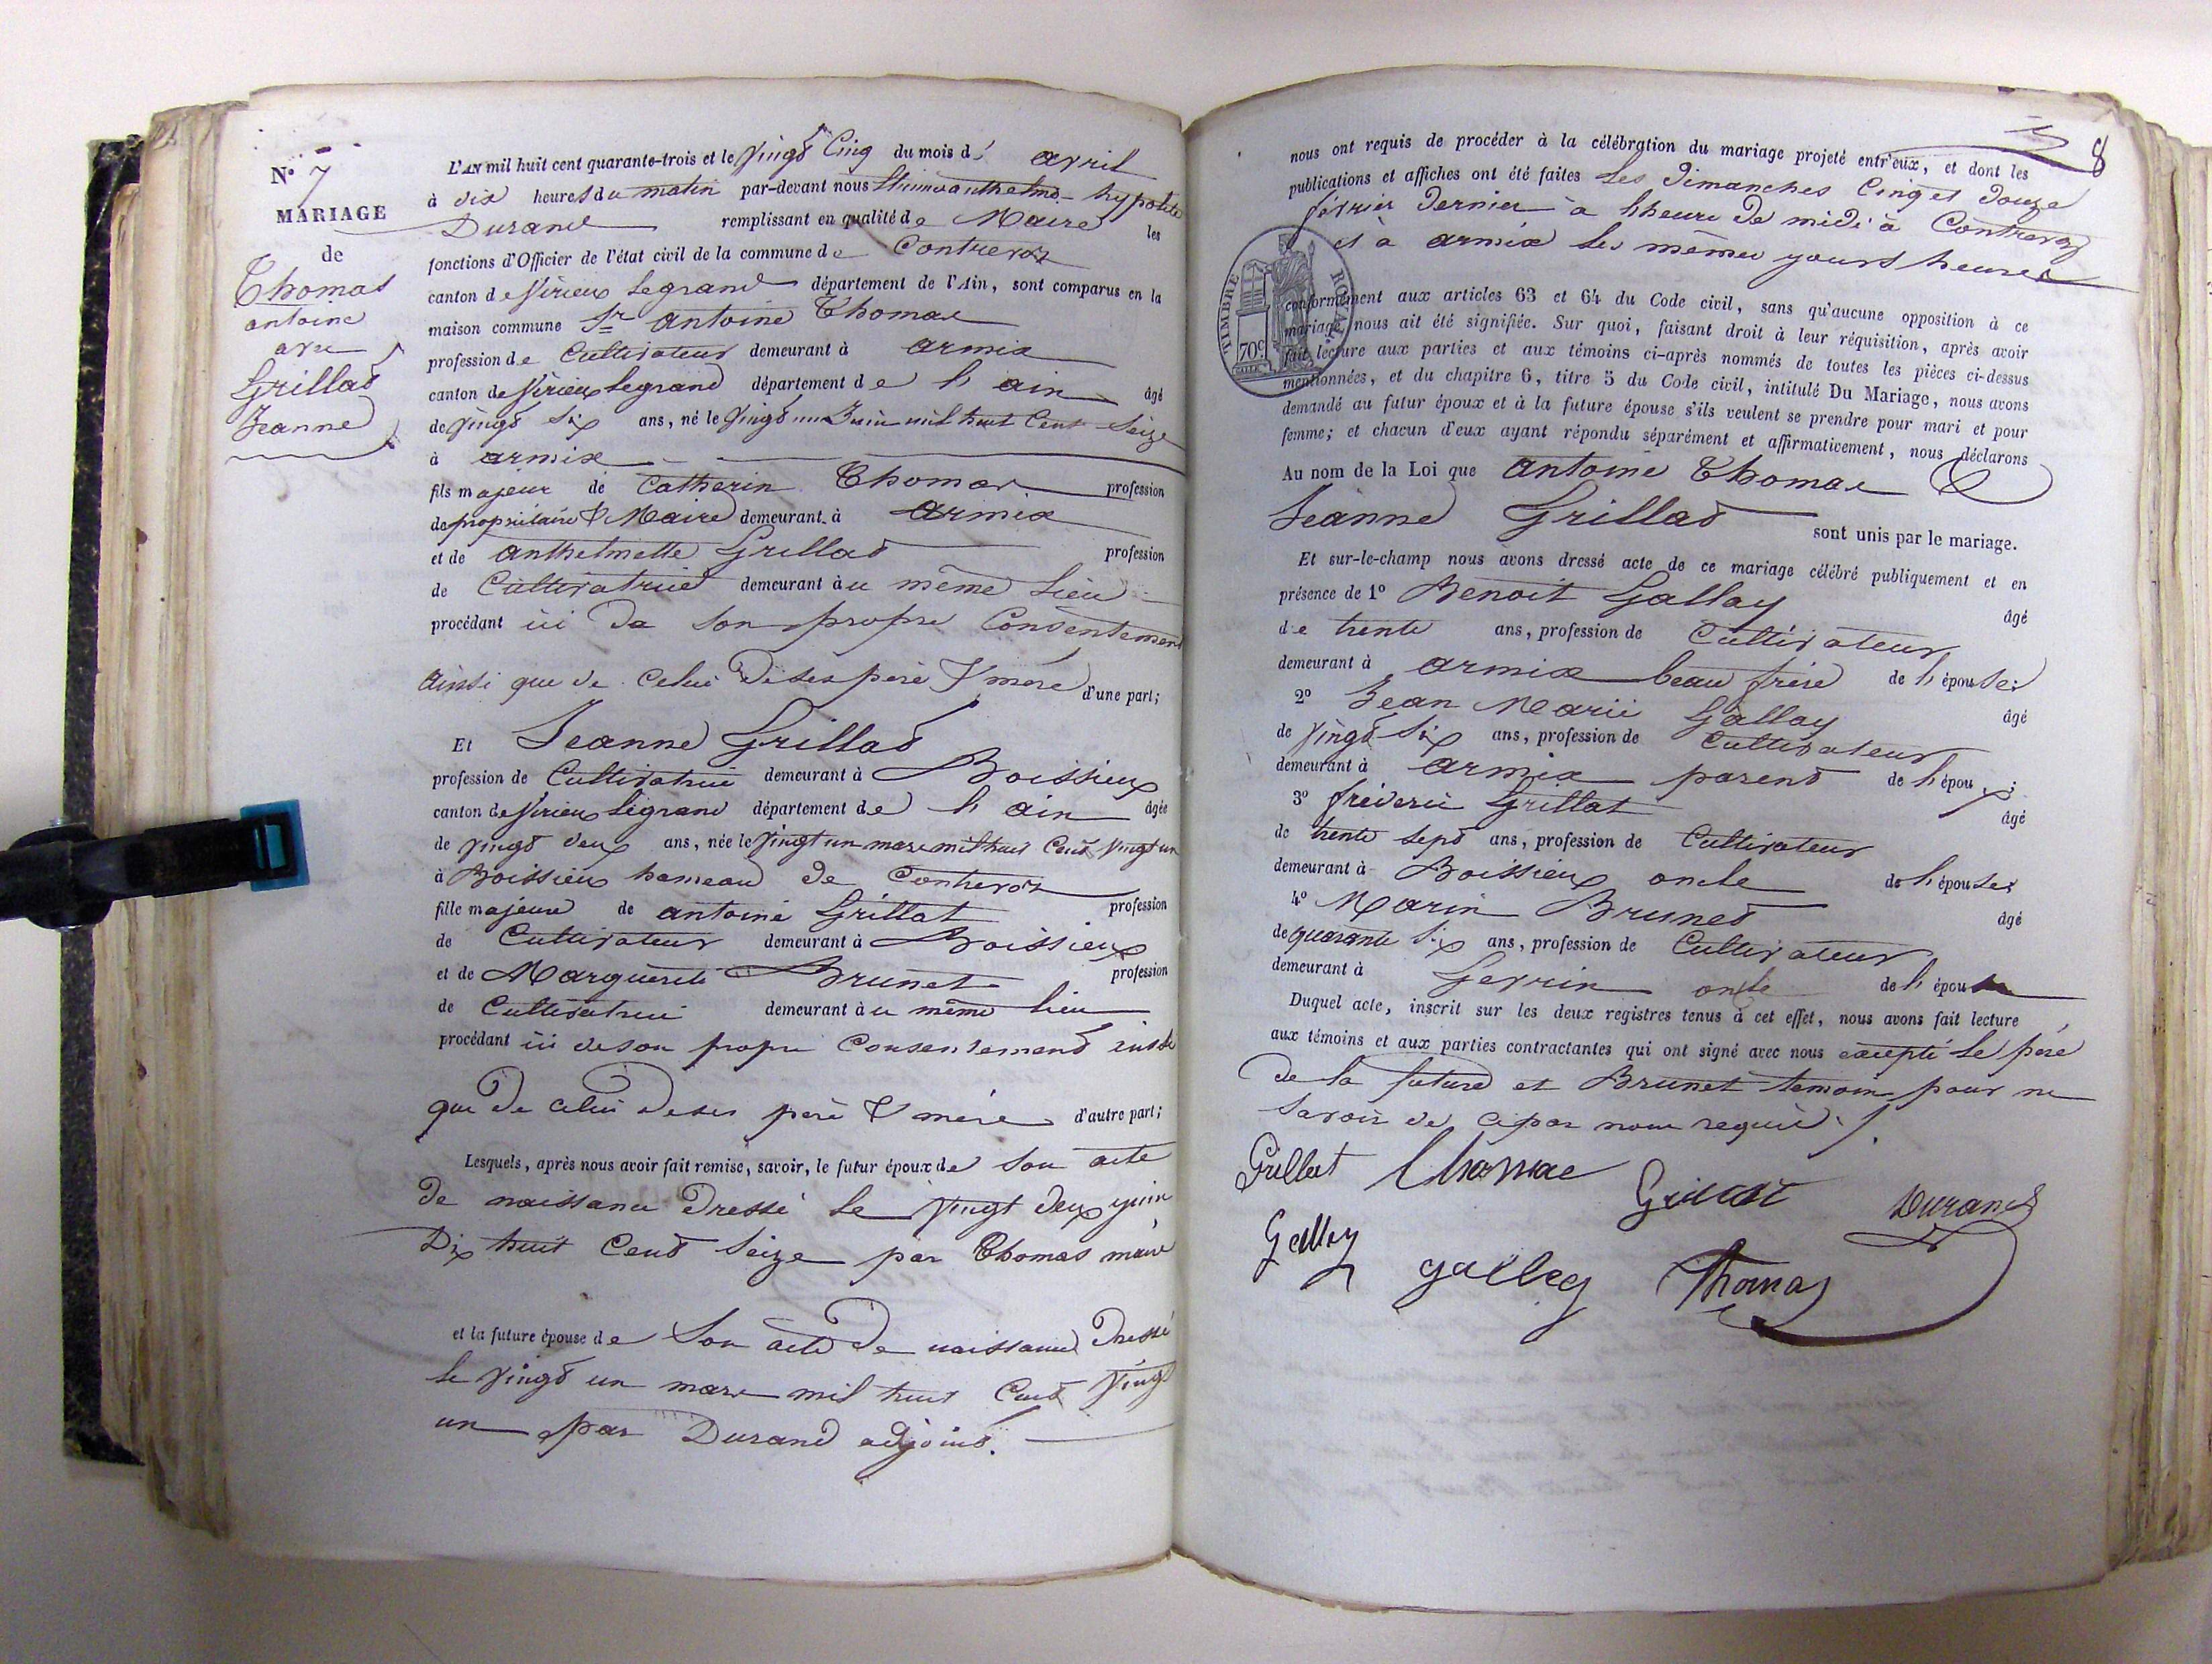 N.° 7
MARIAGE
de
Thomas
antoine
avec
Grillat
Jeanne
L'AN mil huit cent quarante-trois et le vingt Cinq du mois d' avril
à dix heures du matin par-devant nous anthelme hypolite
Durand remplissant en qualité de Maire les
fonctions d'Officier de l'état civil de la commune de Contrevoz
canton de Virieux Legrand département de l'Ain, sont comparus en la
maison commune Sr antoine Thomas
profession de Cultivateur demeurant à armix
canton de Virieux Legrand département de l'ain âgé
de vingt Six ans, né le vingt un Juin mil huit Cent Seize
à armix
fils majeur de Catherin Thomas profession
de propriétaire & Maire demeurant à armix
et de anthelmette Grillat profession
de Cultivatrice demeurant à u même Lieu
procédant ici de Son propre Consentement
ainsi que de Celui de ses père & mère d'une part;
Et Jeanne Grillat
profession de Cultivatrice demeurant à Boissieux
canton de Virieux Legrand département de l'ain âgée
de vingt deux ans, née le vingt un mars mil huit Cent vingt un
à Boissieux hameau de Contrevoz
fille majeure de antoine Grillat profession
de Cultivateur demeurant à Boissieux
et de Marguerite Brunet profession
de Cultivatrice demeurant à u même lieu
procédant ici de son propre Consentement
que de celui de ses père & mère d'autre part;
Lesquels, après nous avoir fait remise, savoir, le futur époux de Son acte
de naissance dressé le vingt deux juin
Dix huit Cent Seize par Thomas maire
et la future épouse de Son acte de naissance dressé
le vingt un mars mil huit Cent vingt
un par Durand adjoint.
8
nous ont requis de procéder à la célébration du mariage projeté entr'eux, et dont les
publications et affiches ont été faites Les dimanches Cinq et douze
février dernier à l'heure de midi à Contrevoz
et à armix les mêmes jours & heures
TIMBRE ROYAL
70c
conformément aux articles 63 et 64 du Code civil, sans qu'aucune opposition à ce
mariage, nous ait été signifiée. Sur quoi, faisant droit à leur réquisition, après avoir
fait lecture aux parties et aux témoins ci-après nommés de toutes les pièces ci-dessus
mentionnées, et du chapitre 6, titre 5 du Code civil, intitulé Du Mariage, nous avons
demandé au futur époux et à la future épouse s'ils veulent se prendre pour mari et pour
femme; et chacun d'eux ayant répondu séparément et affirmativement, nous déclarons
Au nom de la Loi que antoine Thomas &
Jeanne Grillat sont unis par le mariage.
Et sur-le-champ nous avons dressé acte de ce mariage célébré publiquement et en
présence de 1° Benoit Gallay âgé
de trente ans, profession de Cultivateur
demeurant à armix beau frère de l'épouse;
2° Jean Marie Gallay âgé
de vingt Six ans, profession de Cultivateur
demeurant à armix parent de l'époux;
3° fréderic Grillat âgé
de trente sept ans, profession de Cultivateur
demeurant à Boissieux oncle de l'épouse;
4° Marin Brunet âgé
de quarante Six ans, profession de Cultivateur
demeurant à Gevrin oncle de l'épouse
Duquel acte, inscrit sur les deux registres tenus à cet effet, nous avons fait lecture
aux témoins et aux parties contractantes qui ont signé avec nous excepté le père
de la future et Brunet temoin pour ne
Savoir de ce par nous requis ./.
Grillat Thomas Grillat Durand
Galley galley Thomas